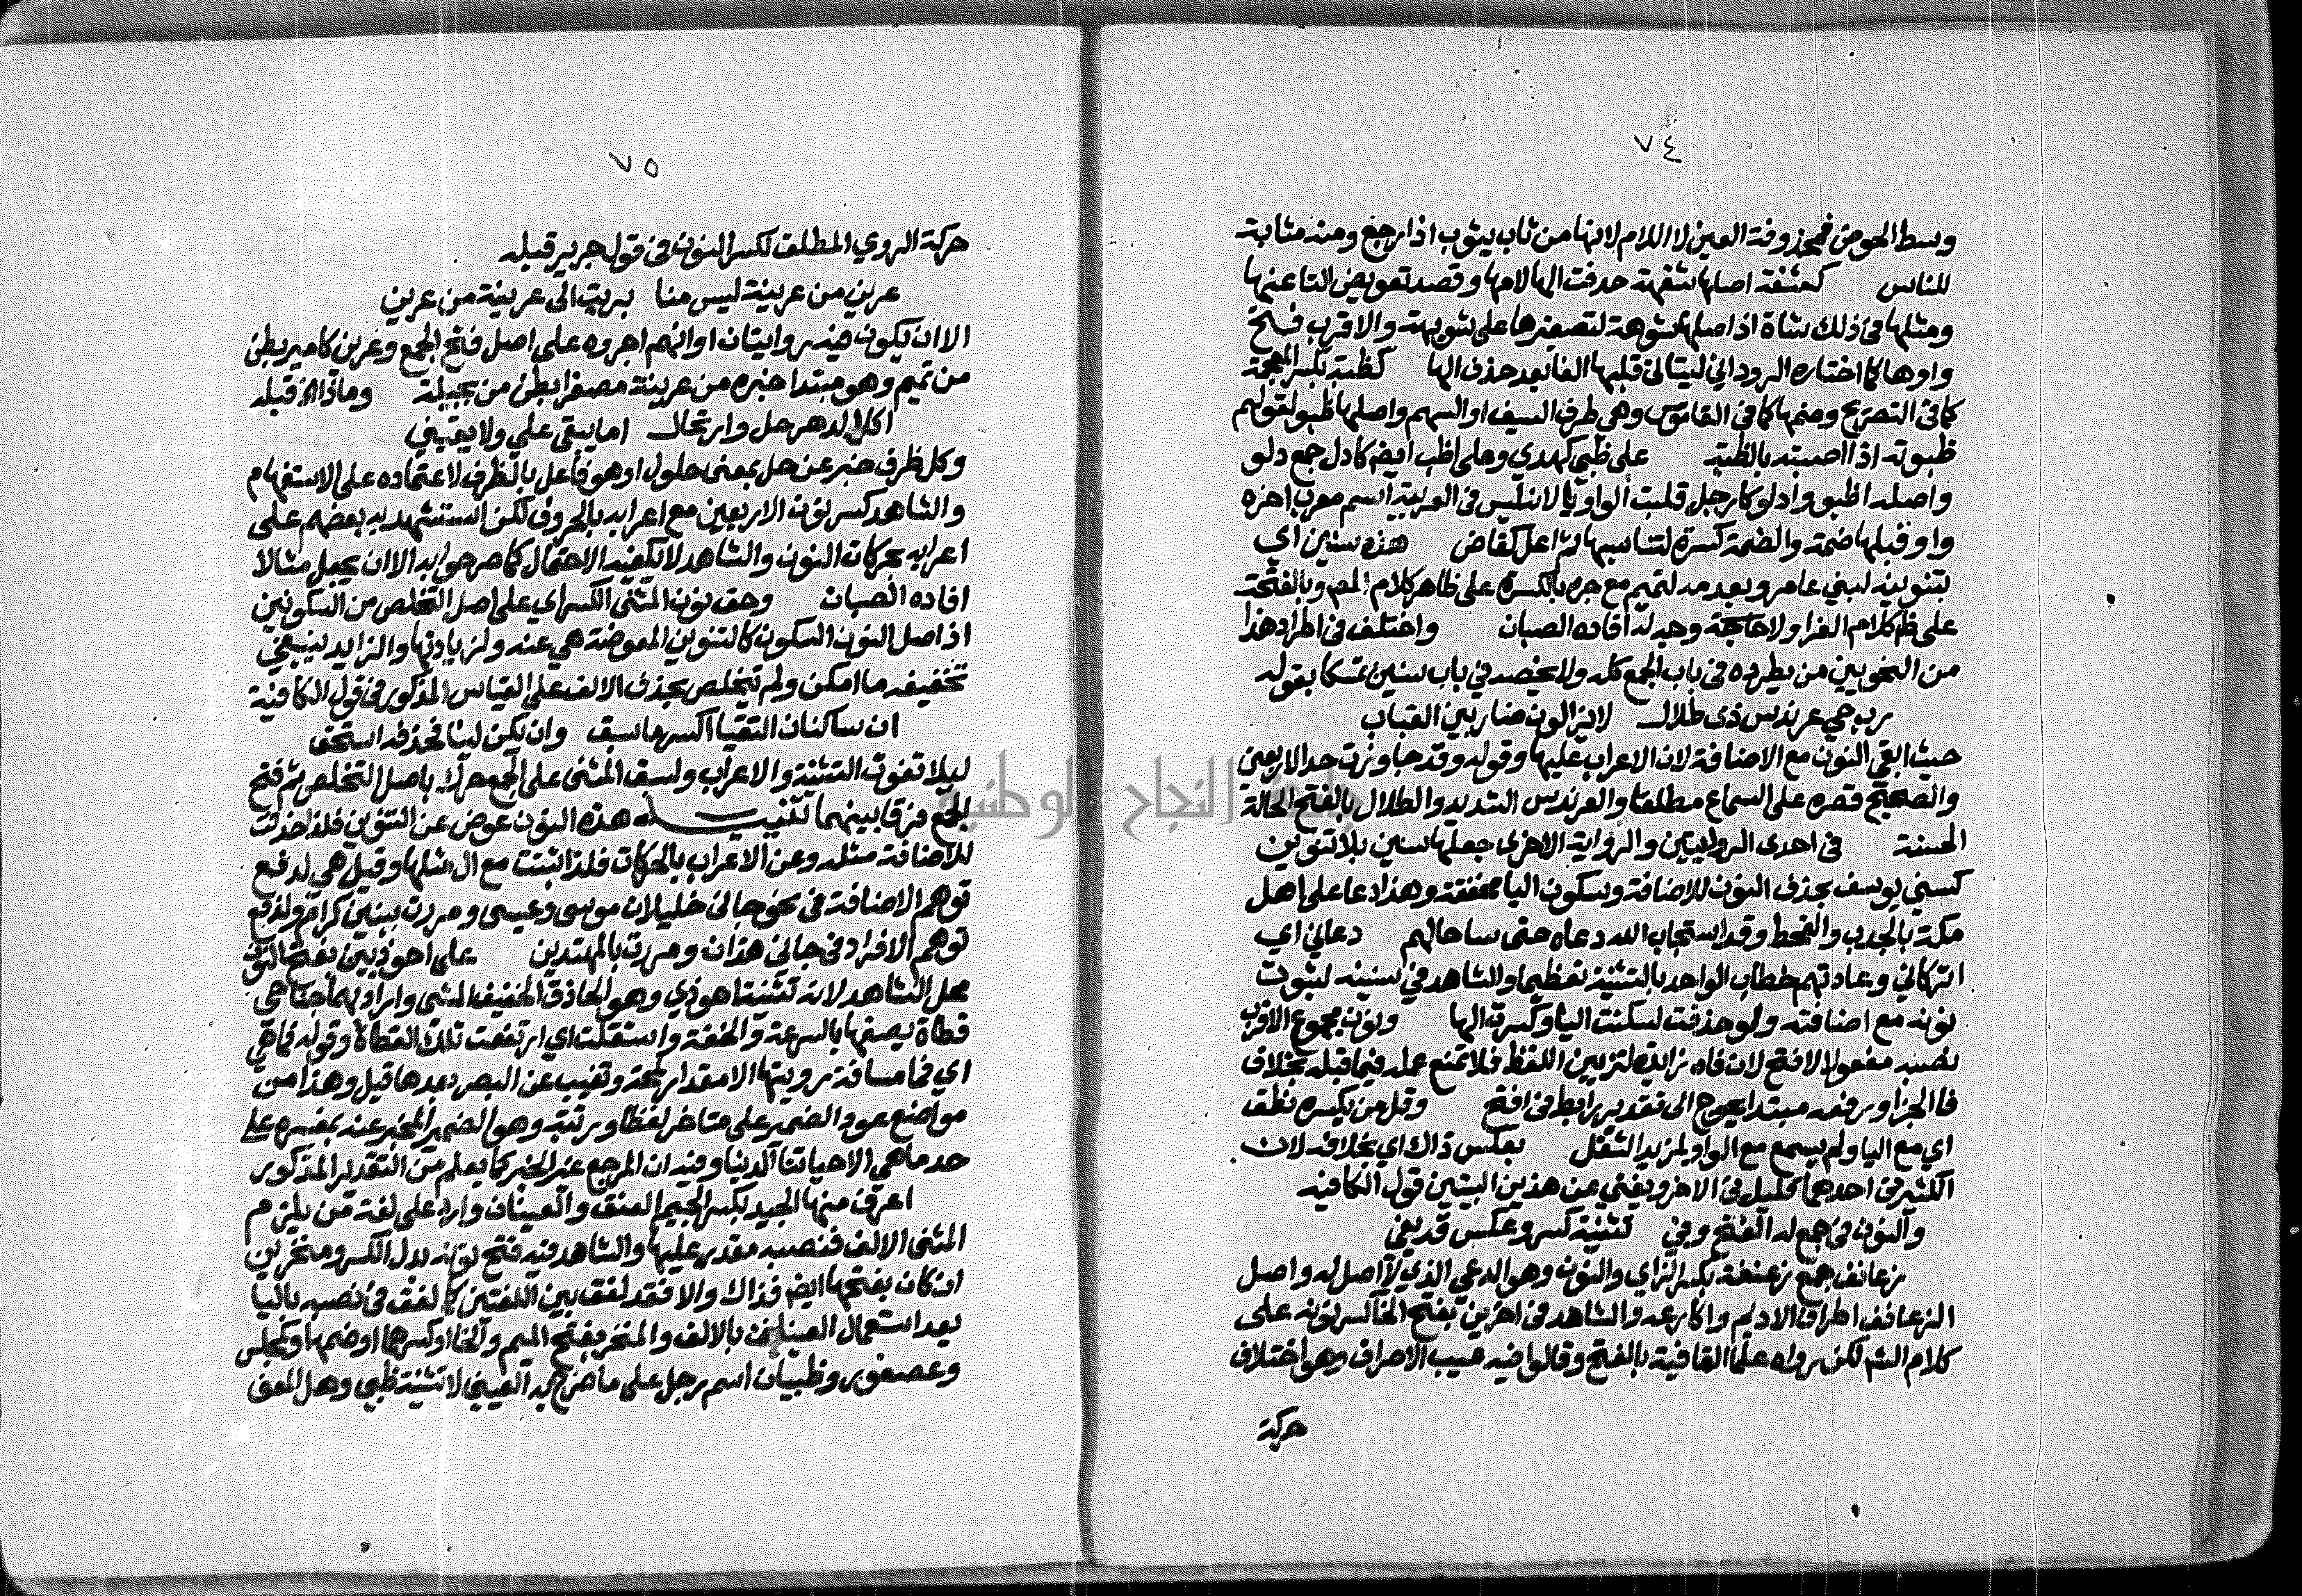 ٧٤
وسط الحوض فمحذوفة العين لا اللام لانها من ثاب يثوب اذا رجع ومنه مثابة
للناس كشفة اصلها شفهة حذفت الها لامها وقصد تعويض التا عنها
ومثلها في ذلك شاة اذ اصلها شوهة لتصغيرها على شويهة والاقرب فتح
واوها كما اختاره الروداني ليتاتى قلبها الفا بعد حذف الها كظبة بكسر المعجمة
كما في التصريح وضمها كما في القاموس وهي طرف السيف او السهم واصلها ظبو لقولهم
ظبوته اذا اصبته بالظبة على ظبي كهدي وعلى اظب ايض كادل جمع دلو
واصله اظبو وادلو كارجل قلبت الواو يا لانه ليس في العربية اسم معرب اخره
واو قبلها ضمة والضمة كسرة لتناسبها ثم اعل كقاض هذه سنين اي
بتنوينه لبني عامر وبعدمه لتميم مع جره بالكسرة على ظاهر كلام المص وبالفتحة
على ظ كلام الفرا ولا حاجة وجيه له افاده الصبان واختلف في اطراد هذا
من النحويين من يطرده في باب الجمع كله ولا يخصه في باب سنين تمسكا بقوله
رب حي عرندس ذي طلال لا يزالون ضاربين القباب
حيث ابقى النون مع الاضافة لان الاعراب عليها وقوله وقد جاوزت حد الاربعين
والصحيح قصره على السماع مطلقا والعرندس الشديد والطلال بالفتح الحالة
الحسنة في احدى الروايتين والرواية الاخرى جعلها سنين بلا تنوين
كسني يوسف بحذف النون للاضافة وسكون اليا مخففة وهذا دعا على اهل
مكة بالجدب والقحط وقد استجاب الله دعاه حتى سا حالهم دعاني اي
اتركاني وعادتهم خطاب الواحد بالتثنية تعظيما والشاهد في سنينه لثبوت
نونه مع اضافته ولو حذفت لسكنت اليا وكسرت الها ونون مجموع الاقرب
نصبه مفعولا لافتح لان فاه زايدة لتزيين اللفظ فلا تمنع عمله فيما قبله بخلاف
فا الجزا ورفعه مبتدا يحوج الى تقدير رابط في افتح وقل من بكسره نطق
اي مع اليا ولم يسمع مع الواو لمزيد الثقل بعكس ذاك اي بخلافه لان
الكثير في احدهما قليل في الاخر ويغني عن هذين البيتين قول الكافيه
والنون في جمع له الفتح وفي تثنية كسر وعكس قد يفي
زعانف جمع زعنفة بكسر الزاي والنون وهو الدعي الذي لا اصل له واصل
الزعانف اطراف الاديم واكارعه والشاهد في اخرين بفتح الخا لكسر نونه على
كلام الشم لكن رواه علما القافية بالفتح وقالوا فيه عيب الاصراف وهو اختلاف
حركة
٧٥
حركة الروي المطلق لكسر النون في قول جرير قبله
عرين من عرينة ليس منا بريت الى عرينة من عرين
الا ان يكون فيه روايتان او انهم اجروه على اصل فتح الجمع وعرين كامير بطن
من تميم وهو مبتدا خبره من عرينة مصغرا بطن من بجيلة وماذا الخ قبله
اكل الدهر حل وارتحال اما يبقي علي ولا يقيني
وكل ظرف خبر عن حل بمعنى حلول او هو فاعل بالظرف لاعتماده على الاستفهام
والشاهد كسر نون الاربعين مع اعرابه بالحروف لكن استشهد به بعضهم على
اعرابه بحركات النون والشاهد لا يكفيه الاحتمال كما صرحوا به الا ان يجعل مثالا
افاده الصبان وحق نون المثنى الكسر اي على اصل التخلص من السكونين
اذ اصل النون السكون كالتنوين المعوضة هي عنه ولزيادتها والزايد ينبغي
تخفيفه ما امكن ولم يتخلص بحذف الالف على القياس المذكور في قول الكافية
ان ساكنان التقيا اكسر ما سبق وان يكن لينا فحذفه استحق
ليلا تفوت التثنية والاعراب ولسبق المثنى على الجمع حرك باصل التخلص ثم فتح
الجمع فرقا بينهما تنبيه هذه النون عوض عن التنوين فلذا حذفت
للاضافة مثله وعن الاعراب بالحركات فلذا ثبتت مع ال مثلها وقيل هي لدفع
توهم الاضافة في نحو جاني خليلان موسى وعيسى ومررت ببنين كرام ولدفع
توهم الافراد في جاني هذان ومررت بالمهتدين على احوذيين بفتح النون
محل الشاهد لانه تثنية احوذي وهو الحاذق الخفيف المشي واراد بهما جناحي
قطاة يصفها بالسرعة والخفة واستقلت اي ارتفعت تلك القطاة وقوله فما هي
اي فما مسافة رويتها الا مقدار لمحة وتغيب عن البصر بعدها قيل وهذا من
مواضع عود الضمير على متاخر لفظا ورتبة وهو الضمير المخبر عنه بمفسره على
حد ما هي الا حياتنا الدنيا وفيه ان المرجع غير الخبر كما يعلم من التقدير المذكور
اعرف منها الجيد بكسر الجيم العنق والعينان وارد على لغة من يلزم
المثنى الالف فنصبه مقدر عليها والشاهد فيه فتح نونه بدل الكسر ومنخرين
ان كان بفتحها ايض فذاك والا فقد لفق بين اللغتين كما لفق في نصبه باليا
بعد استعمال العينان بالالف والمنخر بفتح الميم والخا او كسرهما او ضمها وكمجلس
وعصفور وظبيان اسم رجل على ما ضرح به العيني لا تثنية ظبي وهل المعنى